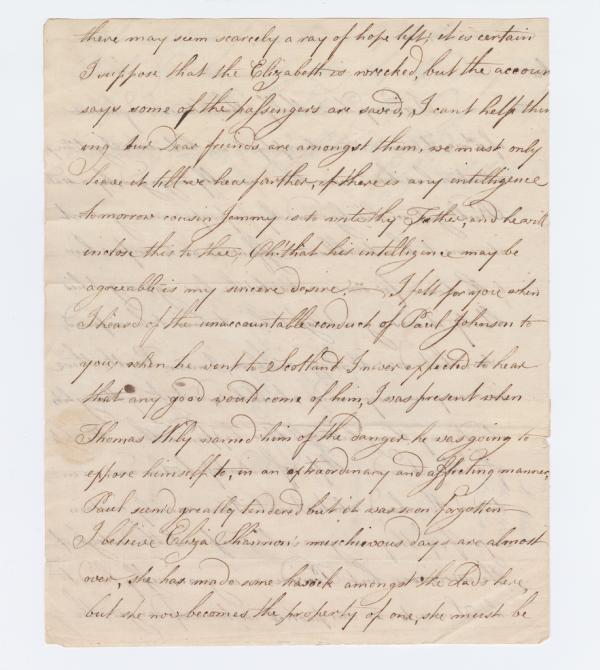 there may seem scarcely a ray of hope left; it is certain
I suppose that the Elizabeth is wrecked, but the accoun
says some of the passengers are saved, I cant help thin
ing our Dear friends are amongst them, we must only
leave it till we hear farther, if there is any intelligence
tomorrow cousin Jemmy is to write thy Father, and he will
inclose this to thee, Oh! that his intelligence may be
agreeable is my sincere desire.— I felt for you when
I heard of the unaccountable conduct of Paul Johnson to
you, when he went to Scotland I never expected to hear
that any good would come of him, I was present when
Thomas Wily warned him of the danger he was going to
expose himself to, in an extraordinary and affecting manner,
Paul seem'd greatly tendered but it was soon forgotten—
I believe Eliza Shannon's mischievous days are almost
over, she has made some havock amongst the Lads here,
but she now becomes the property of one, she must be